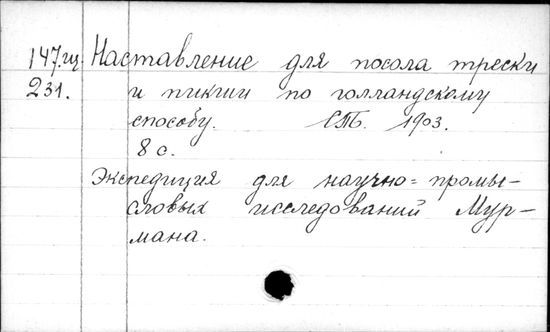 147.гц. Наставление для посола трески
231. и пикши по голландскому
способу. СПБ. 1903.
8 с.
Экспедиция для научно=промы-
словых исследований Мур-
мана.